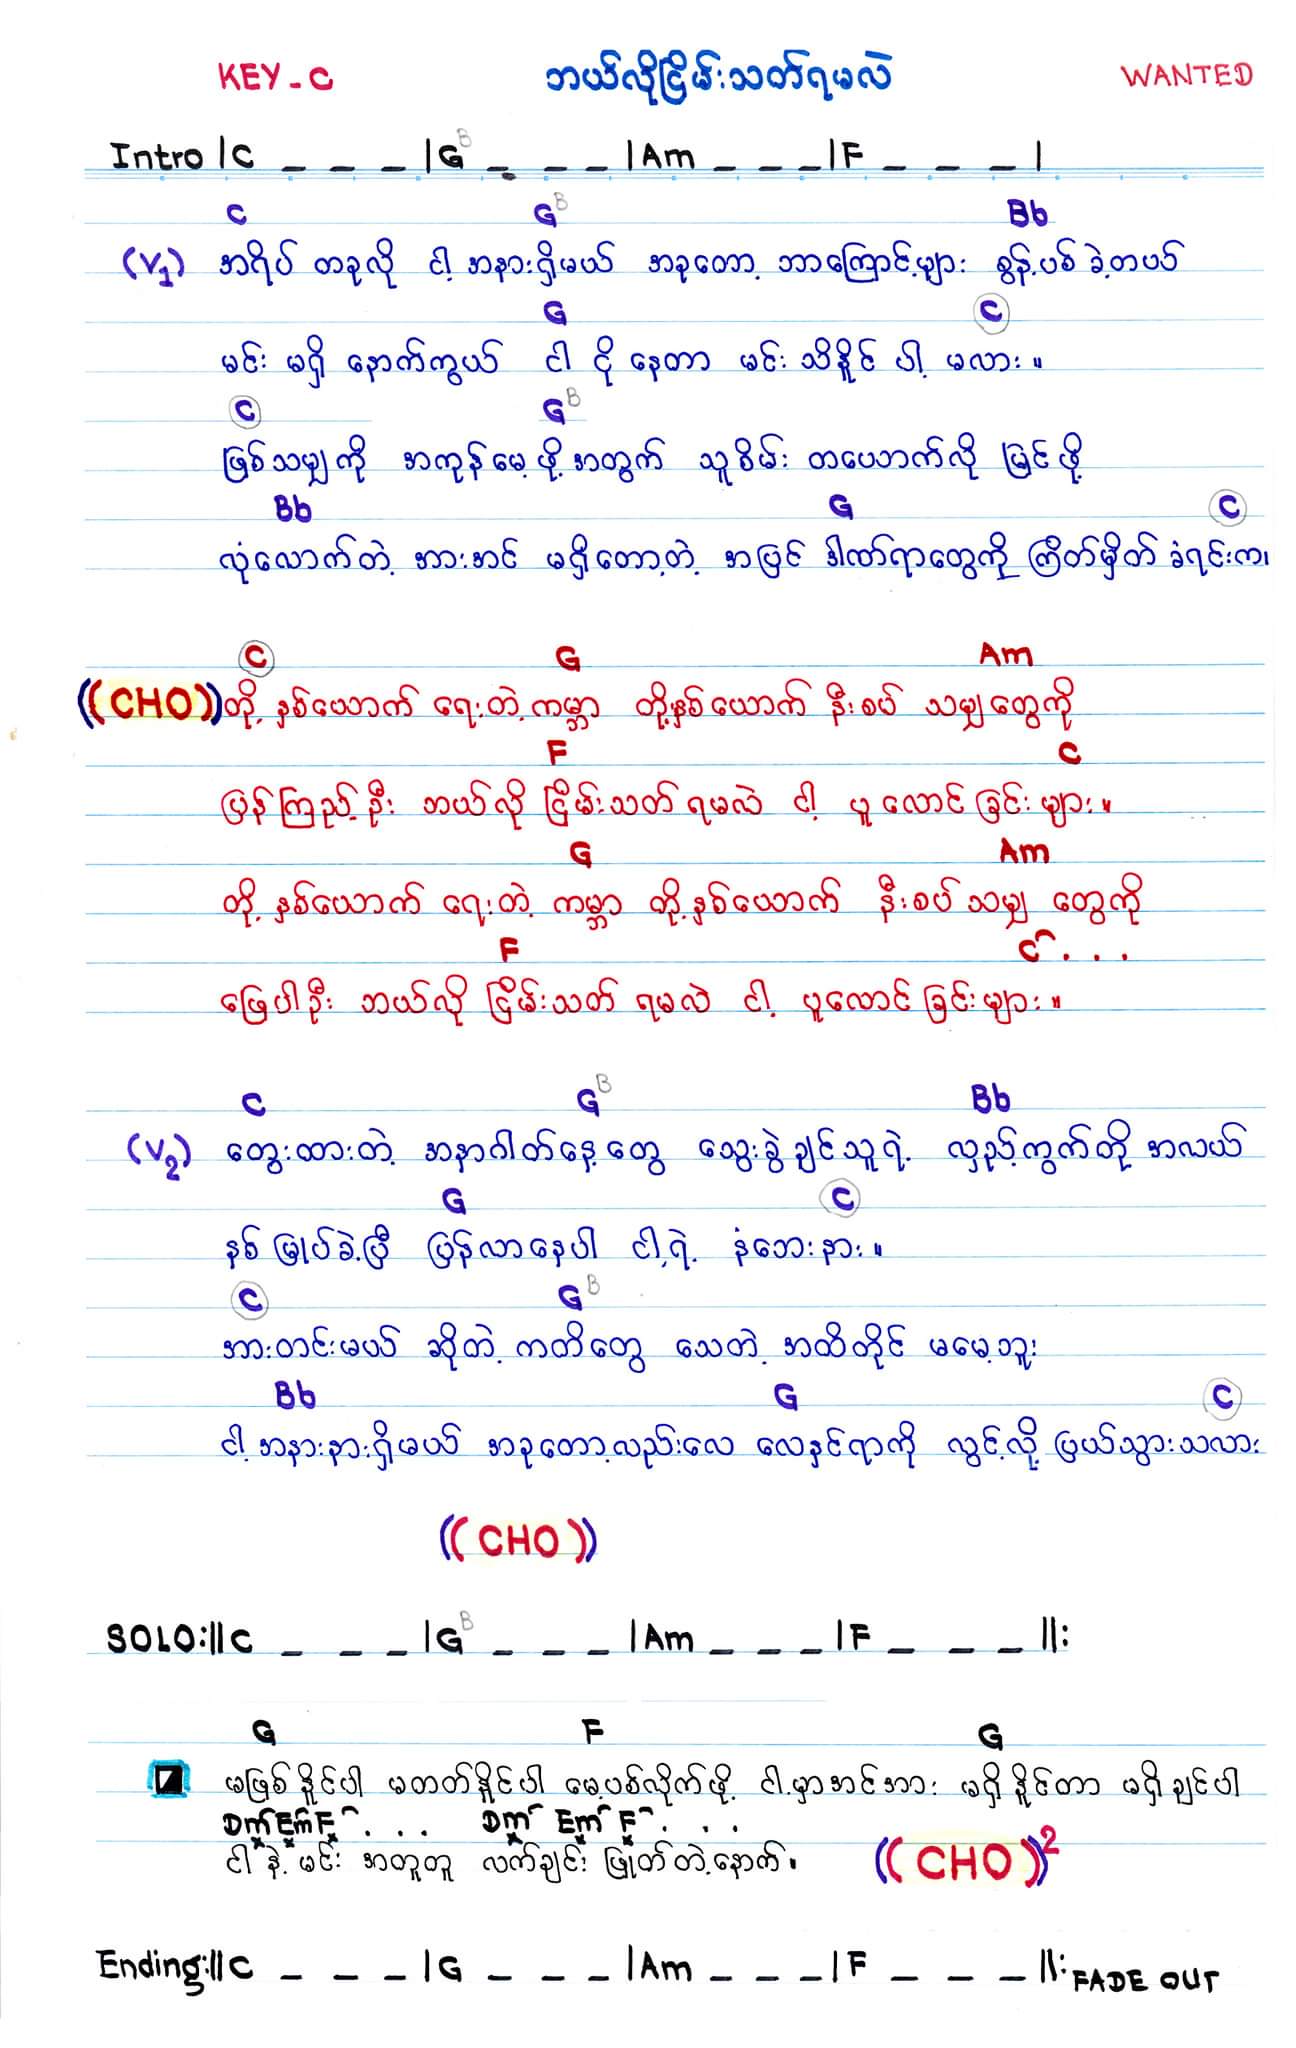 KEY - C ဘယ်လိုငြိမ်းသတ်ရမလဲ WANTED
Intro |C _ _ _ |G B _ _ _ |Am _ _ _ |F _ _ _ |
C G B Bb
(V1) အရိပ် တခုလို ငါ့ အနားရှိမယ် အခုတော့ ဘာကြောင့်များ စွန့်ပစ် ခဲ့တယ်
G C
မင်း မရှိ နောက်ကွယ် ငါ ငို နေတာ မင်း သိနိူင် ပါ့ မလား။
C G B
ဖြစ်သမျှကို အကုန်မေ့ ဖို့ အတွက် သူစိမ်း တယောက်လို မြင် ဖို့
Bb G C
လုံလောက်တဲ့ အားအင် မရှိတော့တဲ့ အပြင် ဒါဏ်ရာတွေကို ကြိတ်မှိတ် ခံရင်းက၊
C G Am
((CHO)) တို့ နှစ်ယောက် ရေးတဲ့ ကမ္ဘာ တို့နှစ်ယောက် နီးစပ် သမျှတွေကို
F C
ပြန်ကြည့်ဦး ဘယ်လို ငြိမ်းသတ် ရမလဲ ငါ့ ပူလောင်ခြင်းများ။
G Am
တို့ နှစ်ယောက် ရေးတဲ့ ကမ္ဘာ တို့ နှစ်ယောက် နီးစပ် သမျှ တွေကို
F C . . .
ဖြေပါဦး ဘယ်လို ငြိမ်းသတ် ရမလဲ ငါ့ ပူလောင်ခြင်းများ။
C G B Bb
(V2) တွေးထားတဲ့ အနာဂါတ်နေ့တွေ သွေးခွဲချင်သူရဲ့ လှည့်ကွက်တို့ အလယ်
G C
နစ်မြုပ်ခဲ့ပြီ ပြန်လာနေပါ ငါ့ရဲ့ နံဘေးနား။
C G B
အားတင်းမယ် ဆိုတဲ့ ကတိတွေ သေတဲ့ အထိတိုင် မမေ့ဘူး
Bb G C
ငါ့ အနားနားရှိမယ် အခုတော့လည်းလေ လေနှင်ရာကို လွင့်လို့ ပြယ်သွားသလား
((CHO))
SOLO:||C _ _ _ |G B _ _ _ |Am _ _ _ |F _ _ _ ||:
G F G
မဖြစ်နိူင်ပါ မတတ်နိူင်ပါ မေ့ပစ်လိုက်ဖို့ ငါ့မှာအင်အား မရှိနိူင်တာ မရှိချင်ပါ
Dm Em F . . . Dm Em F . . .
ငါ နဲ့ မင်း အတူတူ လက်ချင်း ဖြုတ်တဲ့နောက်။ ((CHO))2
Ending:||C _ _ _ |G _ _ _ |Am _ _ _ |F _ _ _ ||: FADE OUT